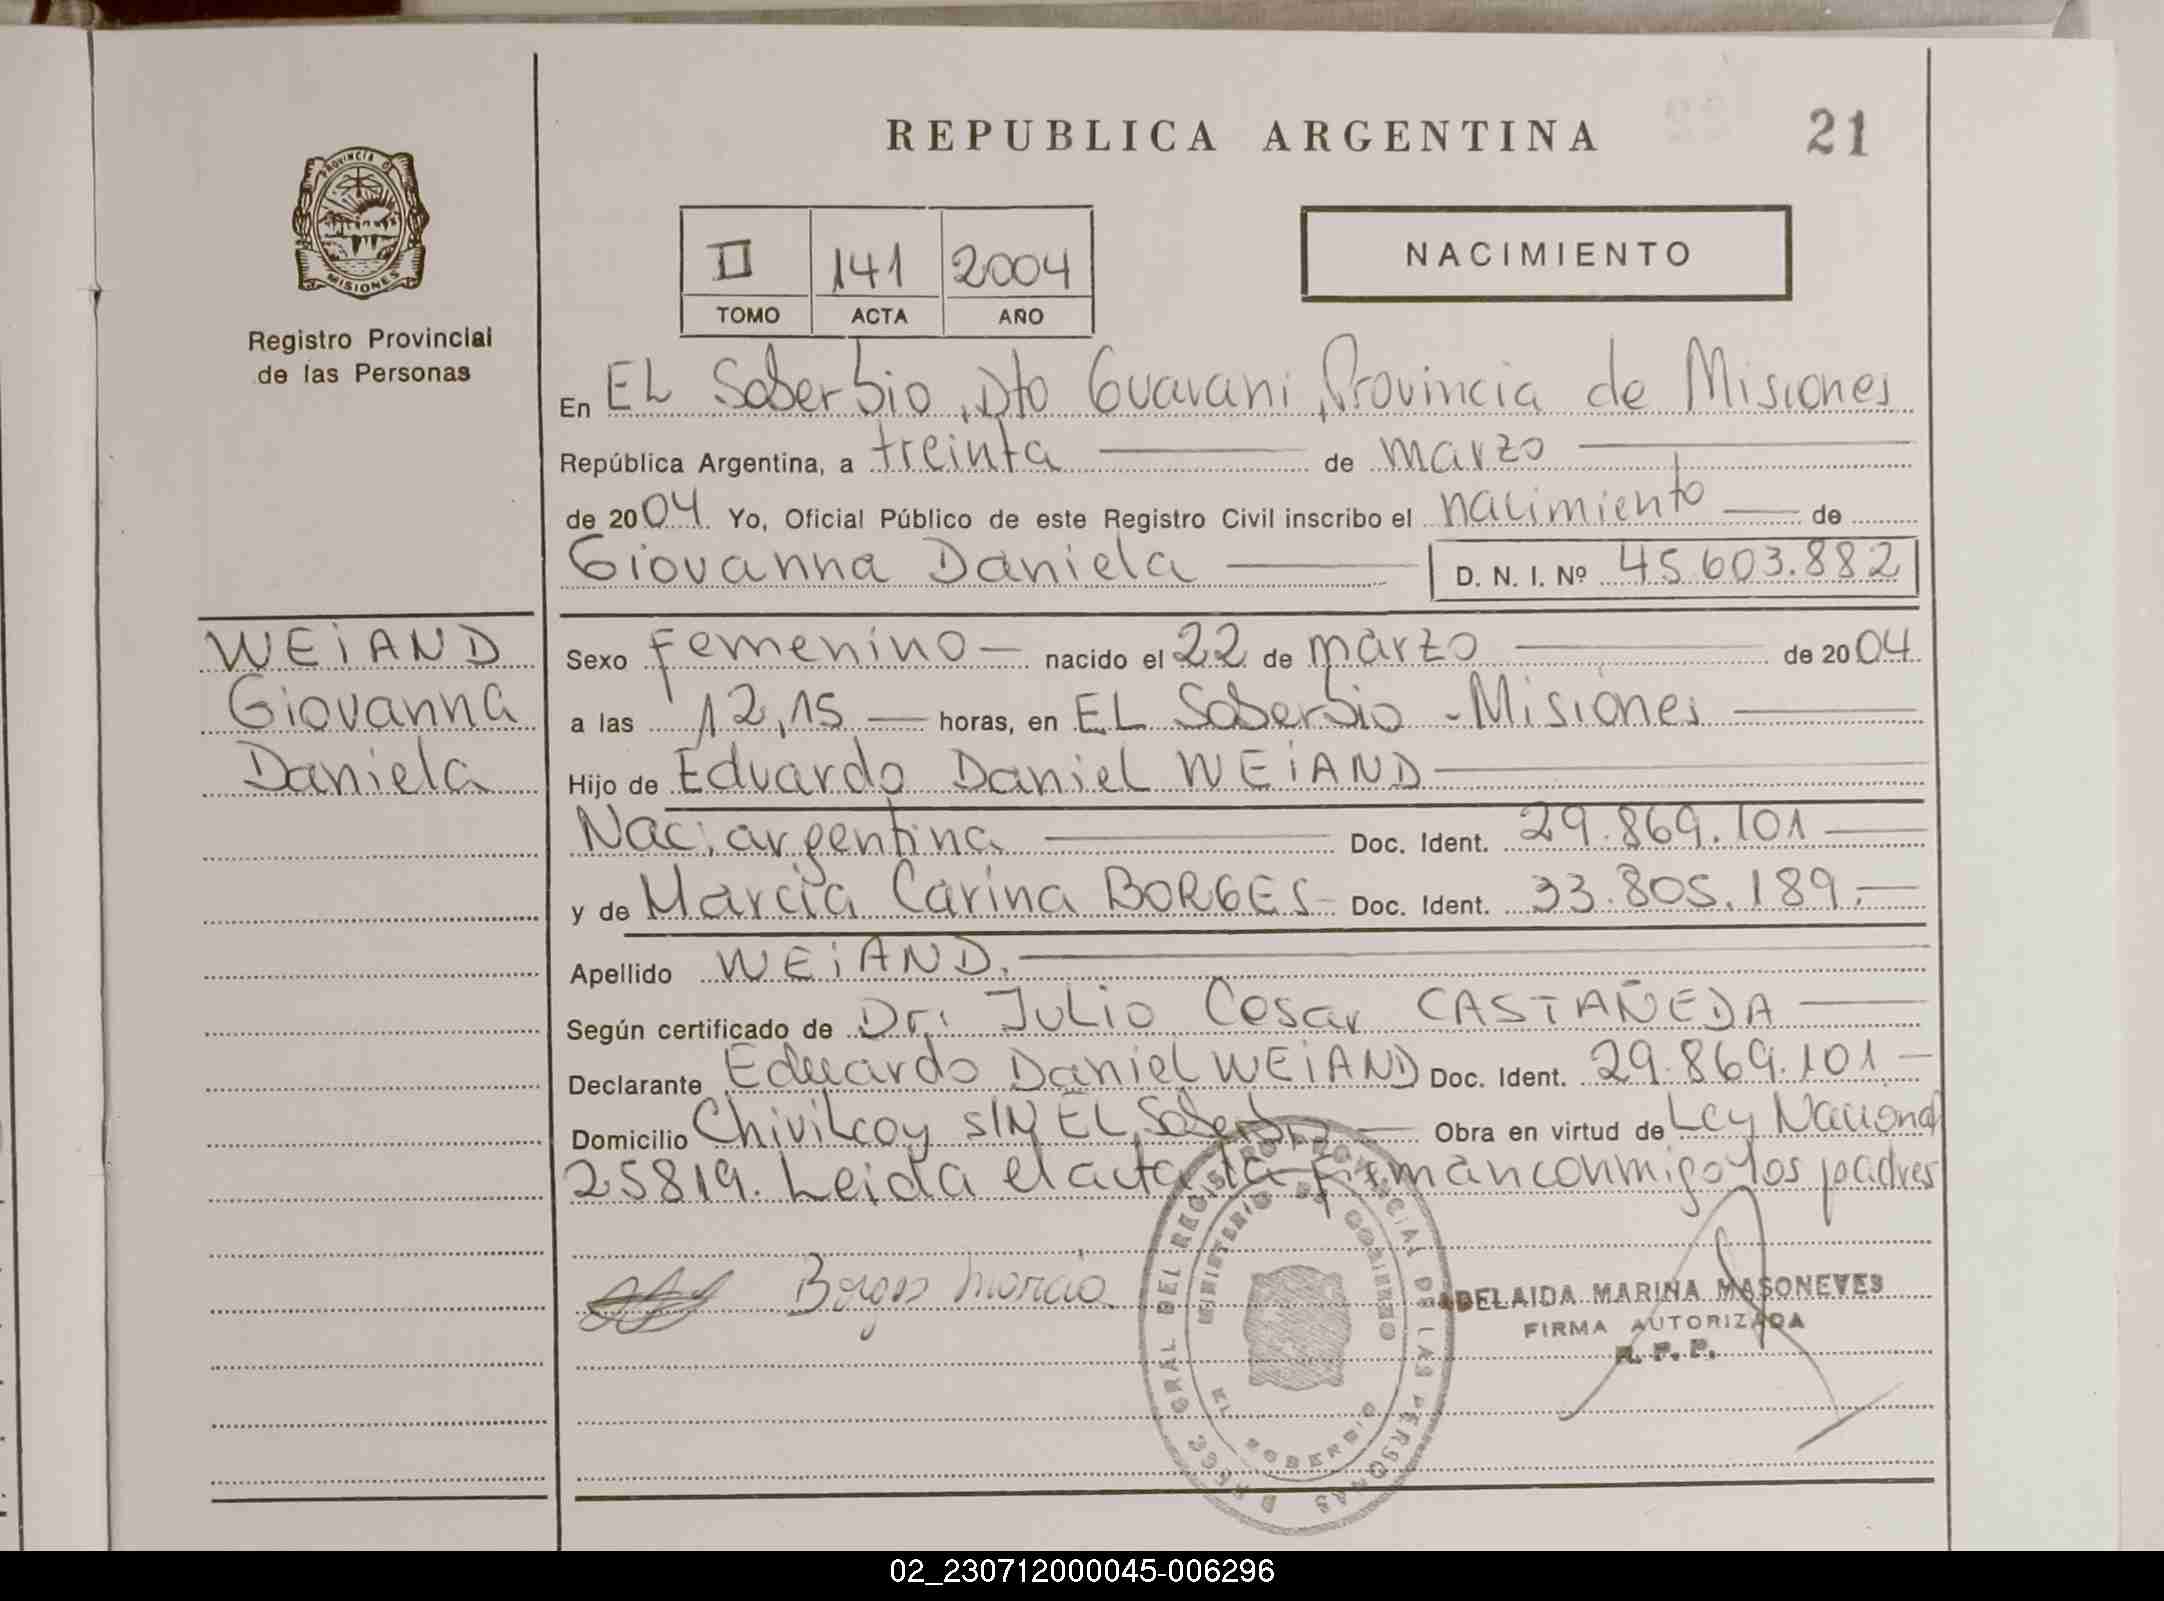 REPUBLICA ARGENTINA
21
PROVINCIA DE
MISIONES
Registro Provincial
de las Personas
II 141 2004
TOMO ACTA AÑO
NACIMIENTO
En EL Soberbio, Dto Guarani, Provincia de Misiones
República Argentina, a treinta de marzo
de 2004 Yo, Oficial Público de este Registro Civil inscribo el nacimiento de
Giovanna Daniela D. N. I. Nº 45.603.882
WEiAND
Giovanna
Daniela
Sexo Femenino nacido el 22 de marzo de 2004
a las 12,15 horas, en EL Soberbio - Misiones
Hijo de Eduardo Daniel WEiAND
Nac. argentina Doc. Ident. 29.869.101
y de Marcia Carina BORGES Doc. Ident. 33.805.189.
Apellido WEiAND.
Según certificado de Dr: Julio Cesar CASTAÑEDA
Declarante Eduardo Daniel WEiAND Doc. Ident. 29.869.101
Domicilio Chivilcoy S/N EL Soberbio Obra en virtud de Ley Nacional
25819. Leida el acta la firman conmigo los padres
Borges Marcia
ADELAIDA MARINA MASONEVES
FIRMA AUTORIZADA
R. P. P.
GRAL DEL REGISTRO PROVINCIAL DE LAS PERSONAS
MINISTERIO DE GOBIERNO
EL SOBERBIO
02_230712000045-006296